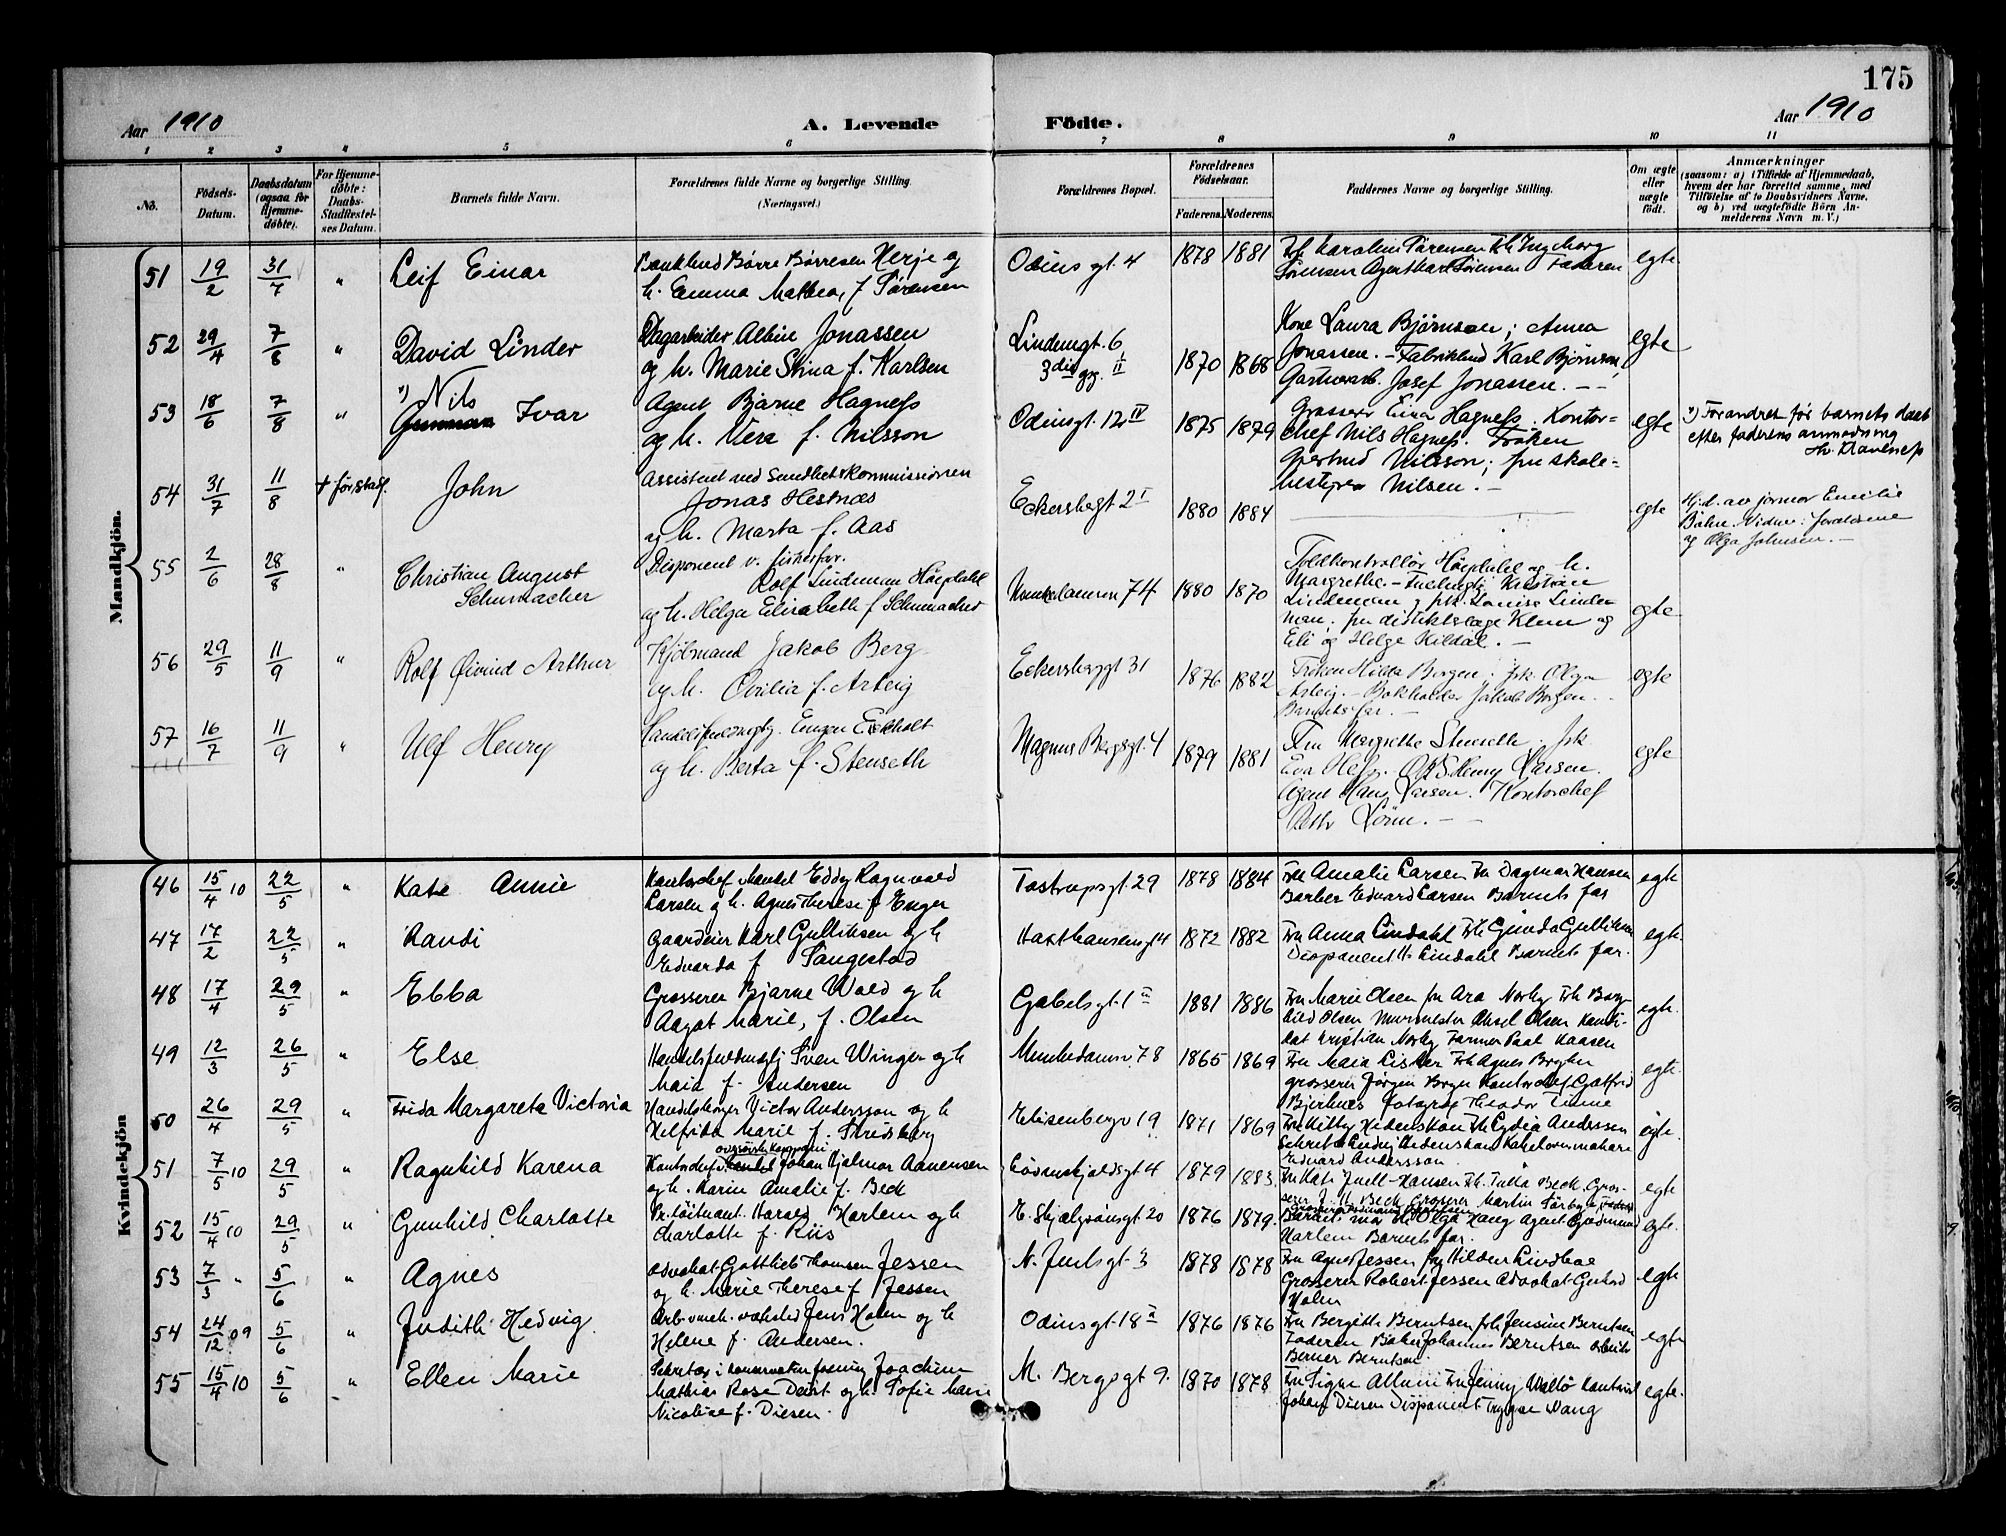 175
Aar 1910 A. Levende Fødte. Aar 1910
1 2 3 4 5 6 7 8 9 10 11
No.
Fødsels-Datum.
Daabsdatum (ogsaa for Hjemmedøbte).
For Hjemmedøbte: Daabs-Stadfæstelses Datum.
Barnets fulde Navn.
Forældrenes fulde Navne og borgerlige Stilling. (Næringsvei.)
Forældrenes Bopæl.
Forældrenes Fødselsaar.
Faderens. Moderens.
Faddernes Navne og borgerlige Stilling.
Om ægte eller uægte født.
Anmærkninger
(saasom: a) i Tilfælde af Hjemmedaab, hvem der har forrettet samme, med Tilføielse af to Daabsvidners Navne, og b) ved uægtefødte Børn Anmelderens Navn m. V.)
Mandkjøn.
51 19/2 31/7 " Leif Einar
Børre Børresen Herje og
h. Emma Mathea, f Sørensen
Odinsgt. 4 1878 1881
Frk Karoline Sørensen Frk Ingeborg
Sørensen Agent Karl Sørensen Faderen
egte
52 29/4 7/8 " David Linder
Dagarbeider Albin Jonassen
og h. Marie Stina f. Karlsen
Lindemgt. 6
1870 1868
Kone Laura Bjørnson; Anna
Jonassen. - Fabrikarbd Karl Bjørnson,
Gartnerarb. Josef Jonassen. - -
egte
53 18/6 7/8 " 1) Nils
Gunnar Ivar
Agent Bjarne Hagness
og h. Vera f. Nilsson
Odinsgt. 12 IV 1875 1879
Grosserer Einar Hagness. Kontor-
chef Nils Hagness. Frøken
Gertrud Nilsson; fru skole-
bestyrer Nilsen. -
egte
1) Forandret før barnets daab
efter faderens anmodning
54 31/7 11/8 John
Assistent ved Sundhetskommissionen
Jonas Hestnæs
og h. Marta f. Aas
Eckersbergt 2 I 1880 1884
egte
Hj.d. av jormor Emilie
Bøhn. Vidner: forældrene
og Olga Johnsen. -
55 2/6 28/8 " Christian August
Schumacher
Disponent v.
Rolf Lindeman Høgdahl
og h. Helga Elisabeth f Schumacher
Munkedamsvn 74 1880 1870
Toldkontrollør Høgdahl og h.
Margrethe. - Kristian
Lindeman, frk. Louise Linde-
man. fru distriktslæge Klem og
Eli og Helge Kildal. -
egte
56 29/5 11/9 " Rolf Øivind Arthur
Kjøbmand Jakob Berg
og h. Ovilia f. Asteig
Eckersbergsgt 31 1876 1882
Frøken Hilda Borgen; frk. Olga
Asteig. - Bokholder Jakob Borgen. -
Barnets far. -
egte
57 16/7 11/9 " Ulf Henry
Handelsfuldmegtig. Eugen Eckholt
og h. Berta f. Stenseth
Magnus Bergsgt. 4 1879 1881
Fru Margrethe Stenseth. frk
Eva Hess. O.R.S. Henry Larsen.
Agent Hans Larsen. Kontorchef
egte
Kvindekjøn
46 15/4 10 22/5 " Kate Annie
Kontorchef Eddy Ragnvald
Larsen og h. Agnes Therese f Enger
Tostrupsgt. 29 1878 1884
Fru Amalie Larsen Frk Dagmar Hansen
Barber Edvard Larsen Barnets far
egte
47 17/2 22/5 " Randi
Gaardeier Karl Gulliksen og h
Edvarda f Sangestad
Haxthausensgt 4 1872 1882
Fru Anna Lindahl Frk Gunda Gulliksen
Disponent H. Lindahl Barnets far.
egte.
48 17/4 29/5 " Ebba
Grosserer Bjarne Wold og h
Aagot Marie, f. Olsen
Gabelsgt. 1 II 1881 1886
Fru Marie Olsen fru Ara Norby Frk Borg-
hild Olsen Murmester Aksel Olsen Kandi-
dat Kristian Norby Farmer Paal Kaasen
egte.
49 12/3 26/5 " Else
Handelsfuldmegtj Sven Winger og h
Maia f. Andersen
Munkedamsv 78 1865 1869
Fru Maia Lisker Frk Agnes Bryhn
grosserer Jørgen Bryn Kontorchef Gotfred
Bjerknes fotograf Theodor Timme
egte.
50 26/4 29/5 " Frida Margareta Victoria
Handelsborger Victor Andersson og h
Helfrida Marie f. Stridsberg
Elisenbergv 19 1871 1869
Fru Kitty Hedenskon Frk Lydia Andersson
Edvard Andersson
egte.
51 7/5 10 29/5 " Ragnhild Karena
Johan Hjalmar Aanensen
og h. Karin Amalie f. Beck
Løvenskjoldsgt 4 1879 1883.
Fru Kate Juell-Hansen Frk. Tulla Beck. Gros-
serer J. H. Beck Grosserer Martin Sørby
egte
52 15/4 10 29/5 " Gunhild Charlotte
Pr. løitnant Harald Harlem og h
Charlotte f. Riis
E. Skjalgsønsgt 20 1876 1879.
Barnets mor Frk Olga Haug Agent Gudmund
Harlem Barnets far.
egte.
53 7/3 " 5/6 " Agnes
Advokat Gottlieb Thomsen Jessen
og h. Marie Therese f Jessen
N. Juelsgt 3 1878 1878
Fru Agnes Jessen fru Hildur Lindboe
Grosserer Robert Jessen Advokat Gerhard
Holm
egte
54 24/12 09 5/6 " Judith Hedvig.
Jens Holm og h
Helene f. Andersen.
Odinsgt. 18 II 1876 1876
Fru Bergitte Berntsen frk Jensine Berntsen
Faderen Baker Johannes Berntsen arbeider
Berner Berntsen.
egte
55 15/4 10 5/6 " Ellen Marie
Sekretær i Joachim
Mathias Rose Deurt og h. Sofie Marie
Nicoline f. Diesen.
M. Bergsgt 9. 1870 1878
Fru Signe Allum Fru Jenny Waltø
Johan Diesen Disponent Trygve Wang
egte.